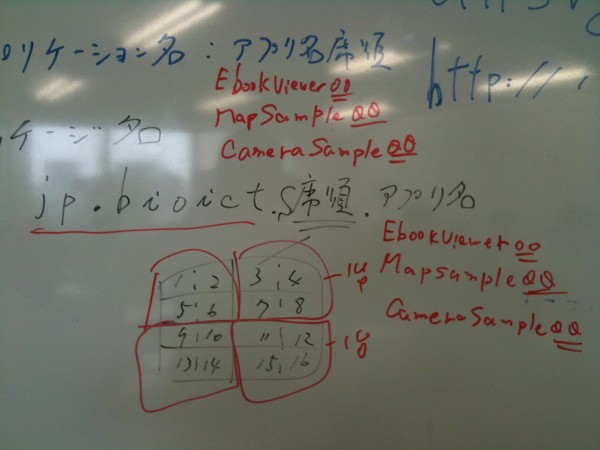 リケーション名：アプリ名席順
EbookViewer00
http://
MapSample00
CameraSample00
ケージ名
jp.bioict.s席順.アプリ名
EbookViewer00
MapSample00
CameraSample00
1 2 3 4
5 6 7 8
9 10 11 12
13 14 15 16